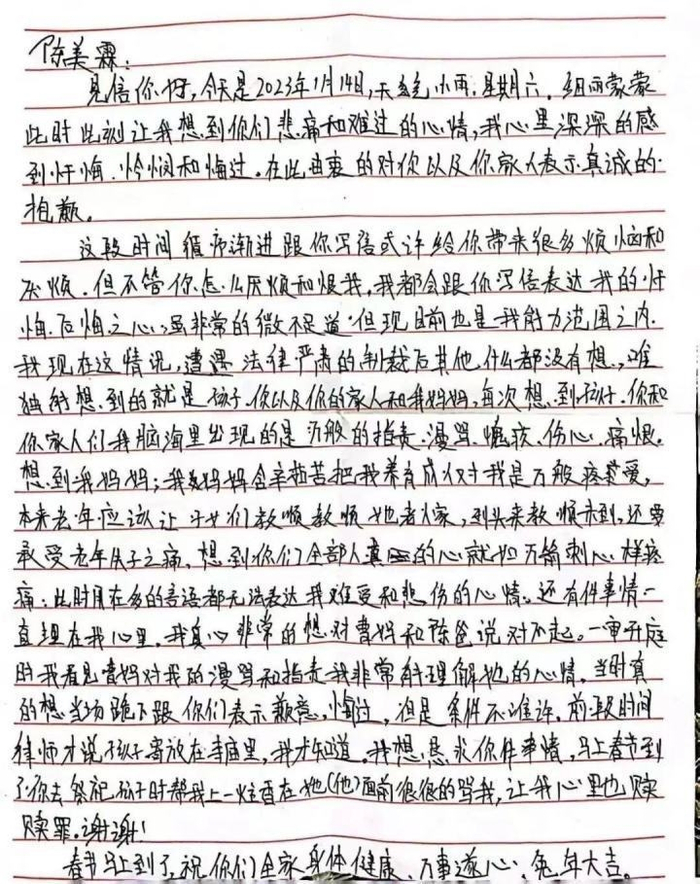 陈美霖:
见信你好,今天是2023年1月14日,天气小雨,星期六。细雨蒙蒙
此时此刻让我想到你们悲痛和难过的心情,我心里深深的感
到忏悔、怜悯和悔过。在此由衷的对你以及你家人表示真诚的
抱歉。
这段时间循序渐进跟你写信或许给你带来很多烦恼和
厌烦。但不管你怎么厌烦和恨我,我都会跟你写信表达我的忏
悔、后悔之心,虽非常的微不足道,但现目前也是我能力范围之内.
我现在这情况,遭遇法律严肃的制裁后其他什么都没有想,唯
独能想到的就是孩子、你以及你的家人和我妈妈,每次想到孩子、你和
你家人们我脑海里出现的是万般的指责、漫骂、伤心、痛恨。
想到我妈妈;我妈妈含辛茹苦把我养育成人对我是万般疼爱,
本来老年应该让子女们教顺教顺她老人家,到头来教顺未到,还要
承受老年失子之痛。想到你们全部人的心就如万箭刺心样疼
痛;此时用在多的言语都无法表达我难受和悲伤的心情。还有件事情一
直埋在我心里,我真心非常的想对曹妈和陈爸说对不起。一审开庭
时我看见曹妈对我的漫骂和指责我非常能理解她的心情,当时真
的想当场跪下跟你们表示歉意、悔过,但是条件不准许,前段时间
律师才说孩子寄放在寺庙里,我才知道。我想恳求你件事情,马上春节到
了你去祭祀孩子时帮我上一炷香在她(他)面前很很的骂我,让我心里也赎
赎罪。谢谢!
春节马上到了,祝你们全家身体健康、万事遂心、兔年大吉。